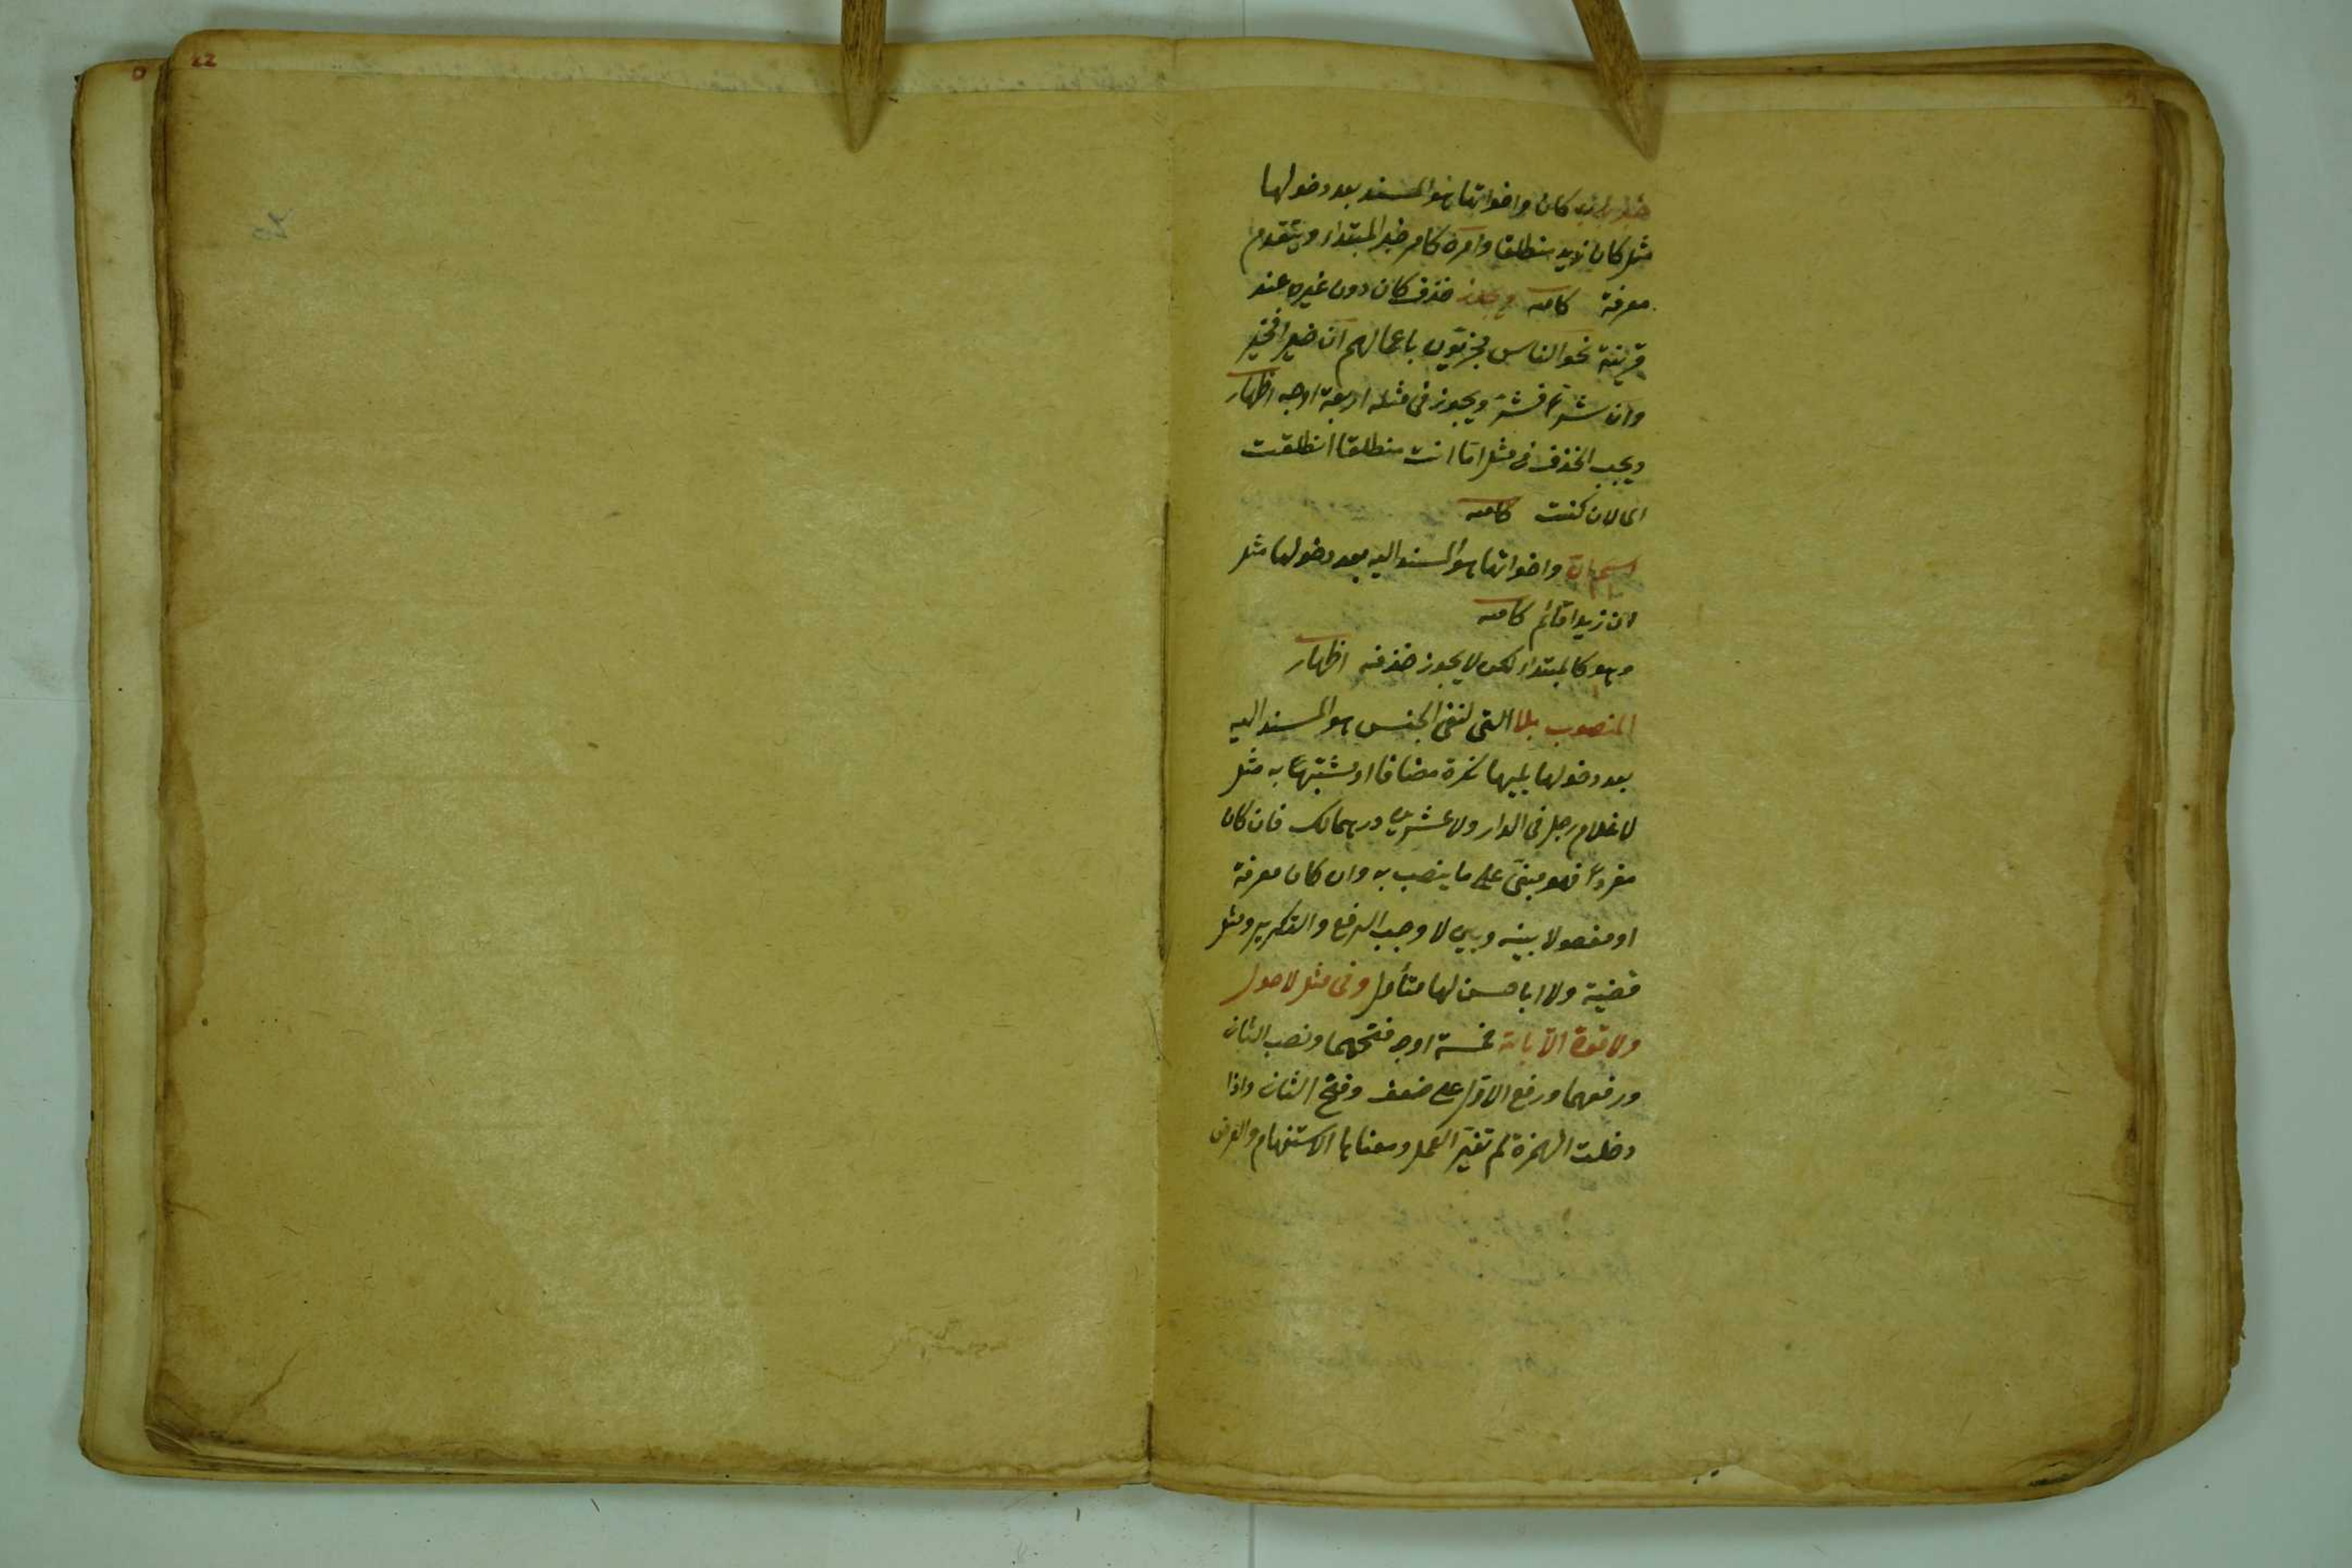 خبر باب كان واخواتها هو المسند بعد دخولها
مثل كان زيد منطلقا وامره كامر خبر المبتداء ويتقدم
معرفة كافيه ويجوز حذف كان دون غيره عند
قرينة نحو الناس مجزيّون باعمالهم ان خيرا فخير
وان شرّا فشرّ ويجوز فى مثله اربعة اوجه اظهار
ويجب الحذف فى مثل امّا انت منطلقا انطلقت
اى لان كنت كافيه
اسم ان واخواتها هو المسند اليه بعد دخولها مثل
ان زيدا قائم كافيه
وهو كالمبتداء لكن لا يجوز حذفه اظهار
المنصوب بلا التى لنفى الجنس هو المسند اليه
بعد دخولها يليها نكرة مضافا او مشبّها به مثل
لا غلام رجل فى الدار ولا عشرين درهما لك فان كان
مفردا فهو مبنىّ على ما ينصب به وان كان معرفة
او مفصولا بينه وبين لا وجب الرفع والتكرير ومثل
قضية ولا ابا حسن لها متأول وفى مثل لا حول
ولا قوة الّا بالله خمسة اوجه فتحهما ونصب الثانى
ورفعهما ورفع الاوّل على ضعف وفتح الثانى واذا
دخلت الهمزة لم تغيّر العمل ومعناها الاستفهام والعرض